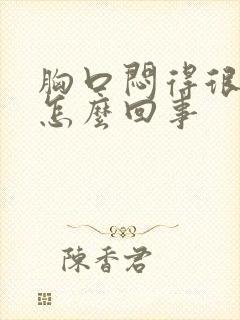 胸口悶得很
怎麼回事
陳香君